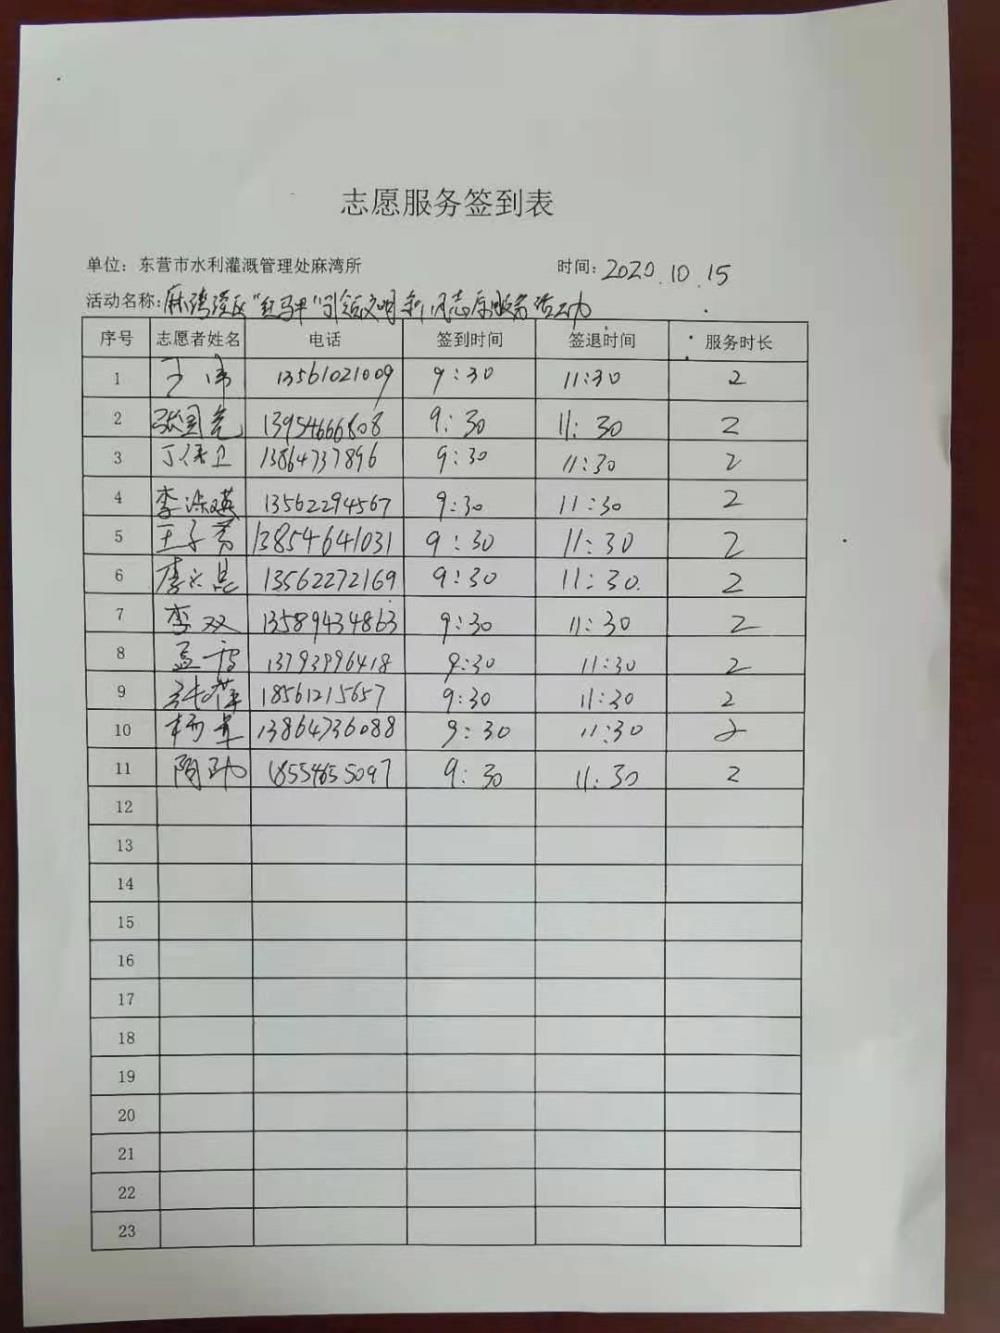 志愿服务签到表
单位：东营市水利灌溉管理处麻湾所 时间：2020.10.15
活动名称：麻湾灌区“红马甲”引领文明新风志愿服务活动
序号 志愿者姓名 电话 签到时间 签退时间 服务时长
1 13561021009 9:30 11:30 2
2 张国亮 13954666808 9:30 11:30 2
3 丁保卫 13864737896 9:30 11:30 2
4 李 13562294567 9:30 11:30 2
5 王子芳 13854641031 9:30 11:30 2
6 李 13562272169 9:30 11:30 2
7 李双 13589434863 9:30 11:30 2
8 孟 13793996418 9:30 11:30 2
9 张萍 18561215657 9:30 11:30 2
10 杨军 13864736088 9:30 11:30 2
11 18554655097 9:30 11:30 2
12
13
14
15
16
17
18
19
20
21
22
23